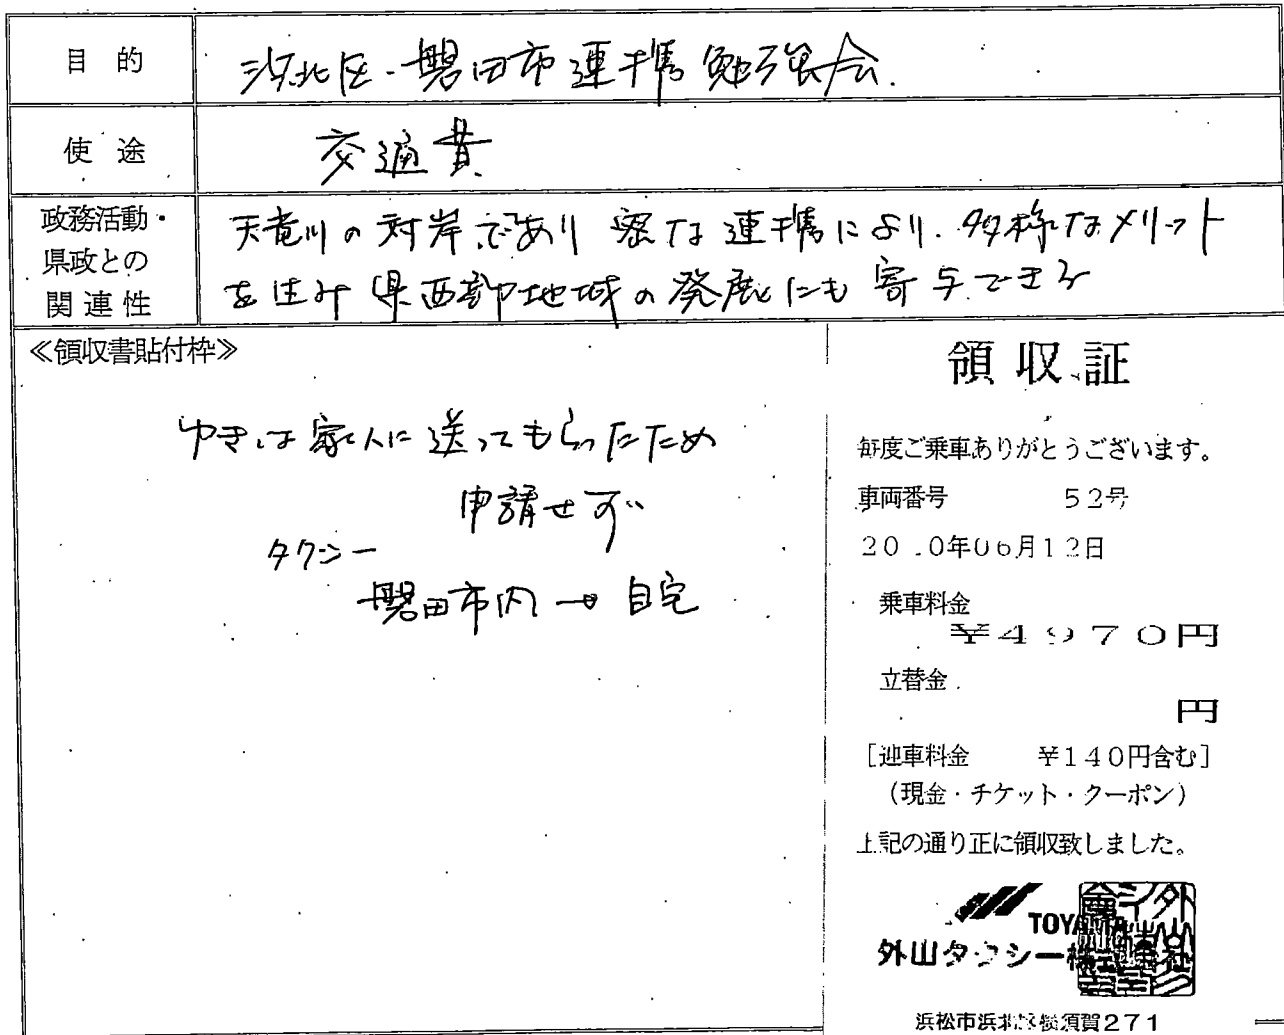 目的
浜北区・磐田市連携勉強会.
使途
交通費
政務活動・
県政との
関連性
天竜川の対岸であり密な連携により、多様なメリット
を生み県西部地域の発展にも寄与できる
≪領収書貼付枠≫
ゆきは家人に送ってもらったため
申請せず
タクシー
磐田市内→自宅
領収証
毎度ご乗車ありがとうございます。
車両番号 52号
20.0年06月12日
乗車料金
¥4970円
立替金
円
[迎車料金 ¥140円含む]
(現金・チケット・クーポン)
上記の通り正に領収致しました。
TOYAMA
外山タクシー株式会社
浜松市浜北区横須賀271